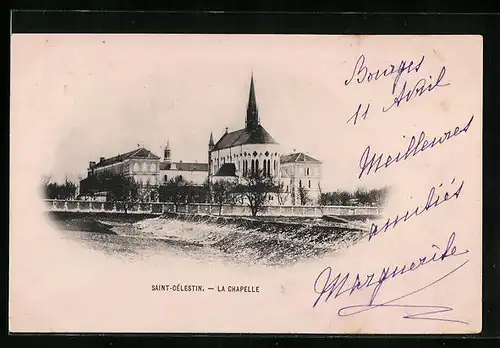 Bourges
11 Avril
Meilleures
amitiés
Marguerite
SAINT-CÉLESTIN. — LA CHAPELLE